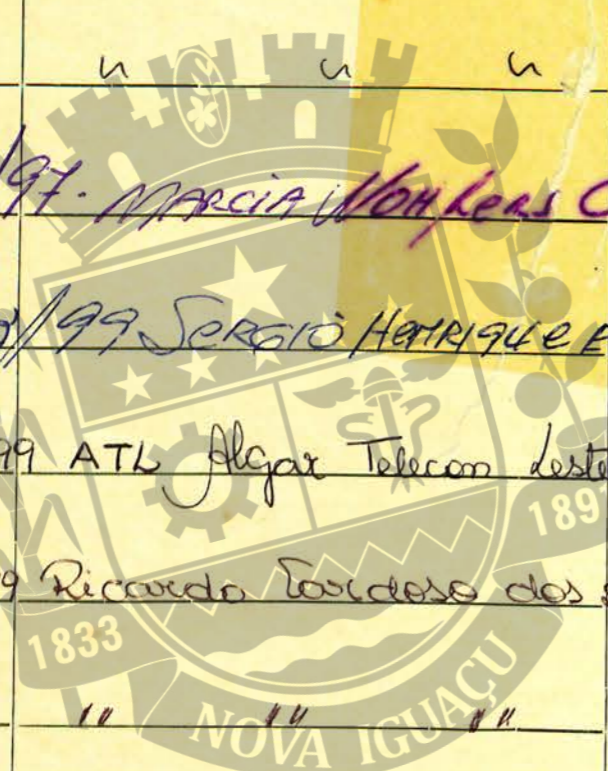 " " "
/97. MARCIA WOHKERS C
/99 SERGIO HENRIQUE F
99 ATL Algar Telecon Leste
189
9 Ricardo Cardoso dos
1833
" " "
NOVA IGUAÇU